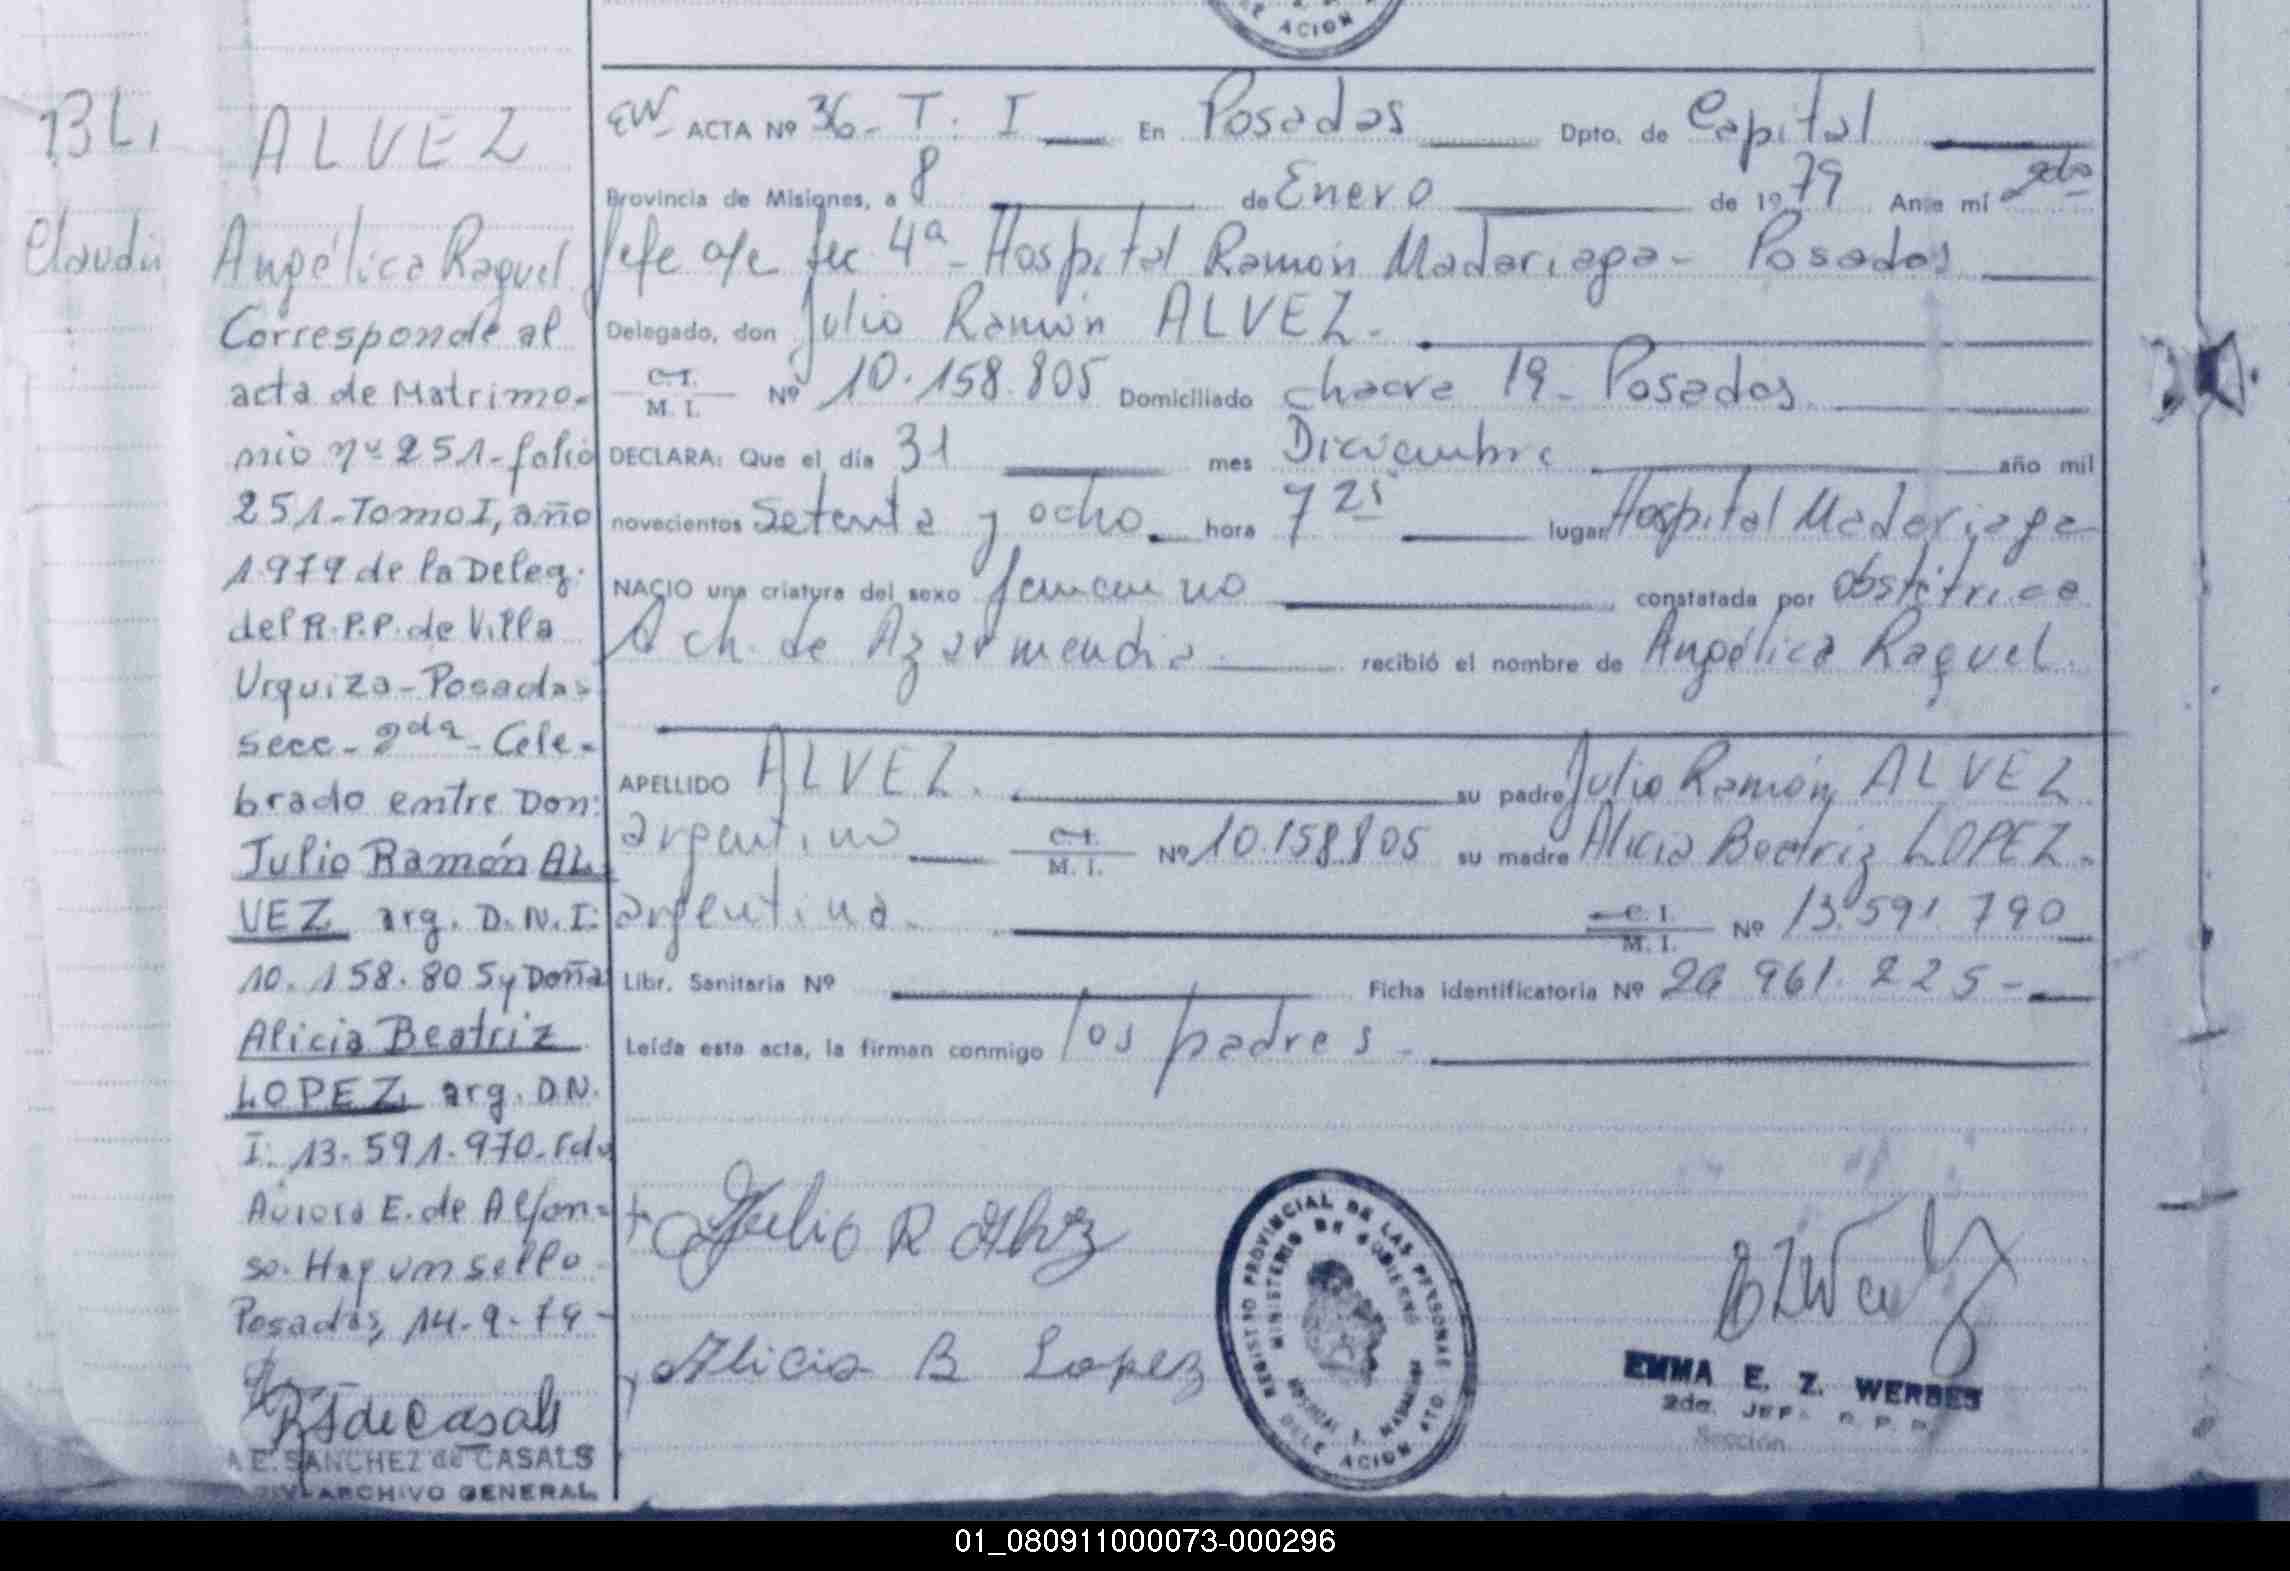 ACION
BLI
Claudi
ALVEZ
Angélica Raquel
Corresponde al
acta de Matrimo-
nio nº 251-folio
251-Tomo I, año
1979 de la Deleg.
del R.P.P. de Villa
Urquiza-Posadas
secc-2da-Cele-
brado entre Don:
Julio Ramón AL
VEZ arg. D.N.I:
10.158.805 y Doña
Alicia Beatriz
LOPEZ, arg. D.N.
I: 13-591.970-Fdo
Aurora E. de Alfon-
so. Hay un sello
Posadas, 14-9-79-
de Casals
A E. SANCHEZ de CASALS
DIV. ARCHIVO GENERAL
EW- ACTA Nº 36- T. I En Posadas Dpto. de Capital
Provincia de Misiones, a 8 de Enero de 1979 Ante mí 2do
Jefe a/c Sec 4ª- Hospital Ramón Madariaga- Posadas
Delegado, don Julio Ramón ALVEZ.
C.I. M. I. Nº 10.158.805 Domiciliado chacra 19- Posadas
DECLARA: Que el día 31 mes Diciembre año mil
novecientos setenta y ocho. hora 7 25 lugar Hospital Madariaga
NACIO una criatura del sexo femenino constatada por obstétrica
A ch. de Azarmendia recibió el nombre de Angélica Raquel.
APELLIDO ALVEZ. su padre Julio Ramón ALVEZ
argentino C.I. M. I. Nº 10.158.805 su madre Alicia Beatriz LOPEZ.
argentina. C. I. M. I. Nº 13.591.790
Libr. Sanitaria Nº Ficha identificatoria Nº 26 961.225-
Leída esta acta, la firman conmigo los padres-
Julio R Alvez
Alicia B Lopez
REGISTRO PROVINCIAL DE LAS PERSONAS
MINISTERIO DE GOBIERNO
HOSPITAL R. MADARIAGA
DELEGACION 4TO
EMMA E. Z. WERBES
2do. JEFE R. P. P.
Sección
01_080911000073-000296